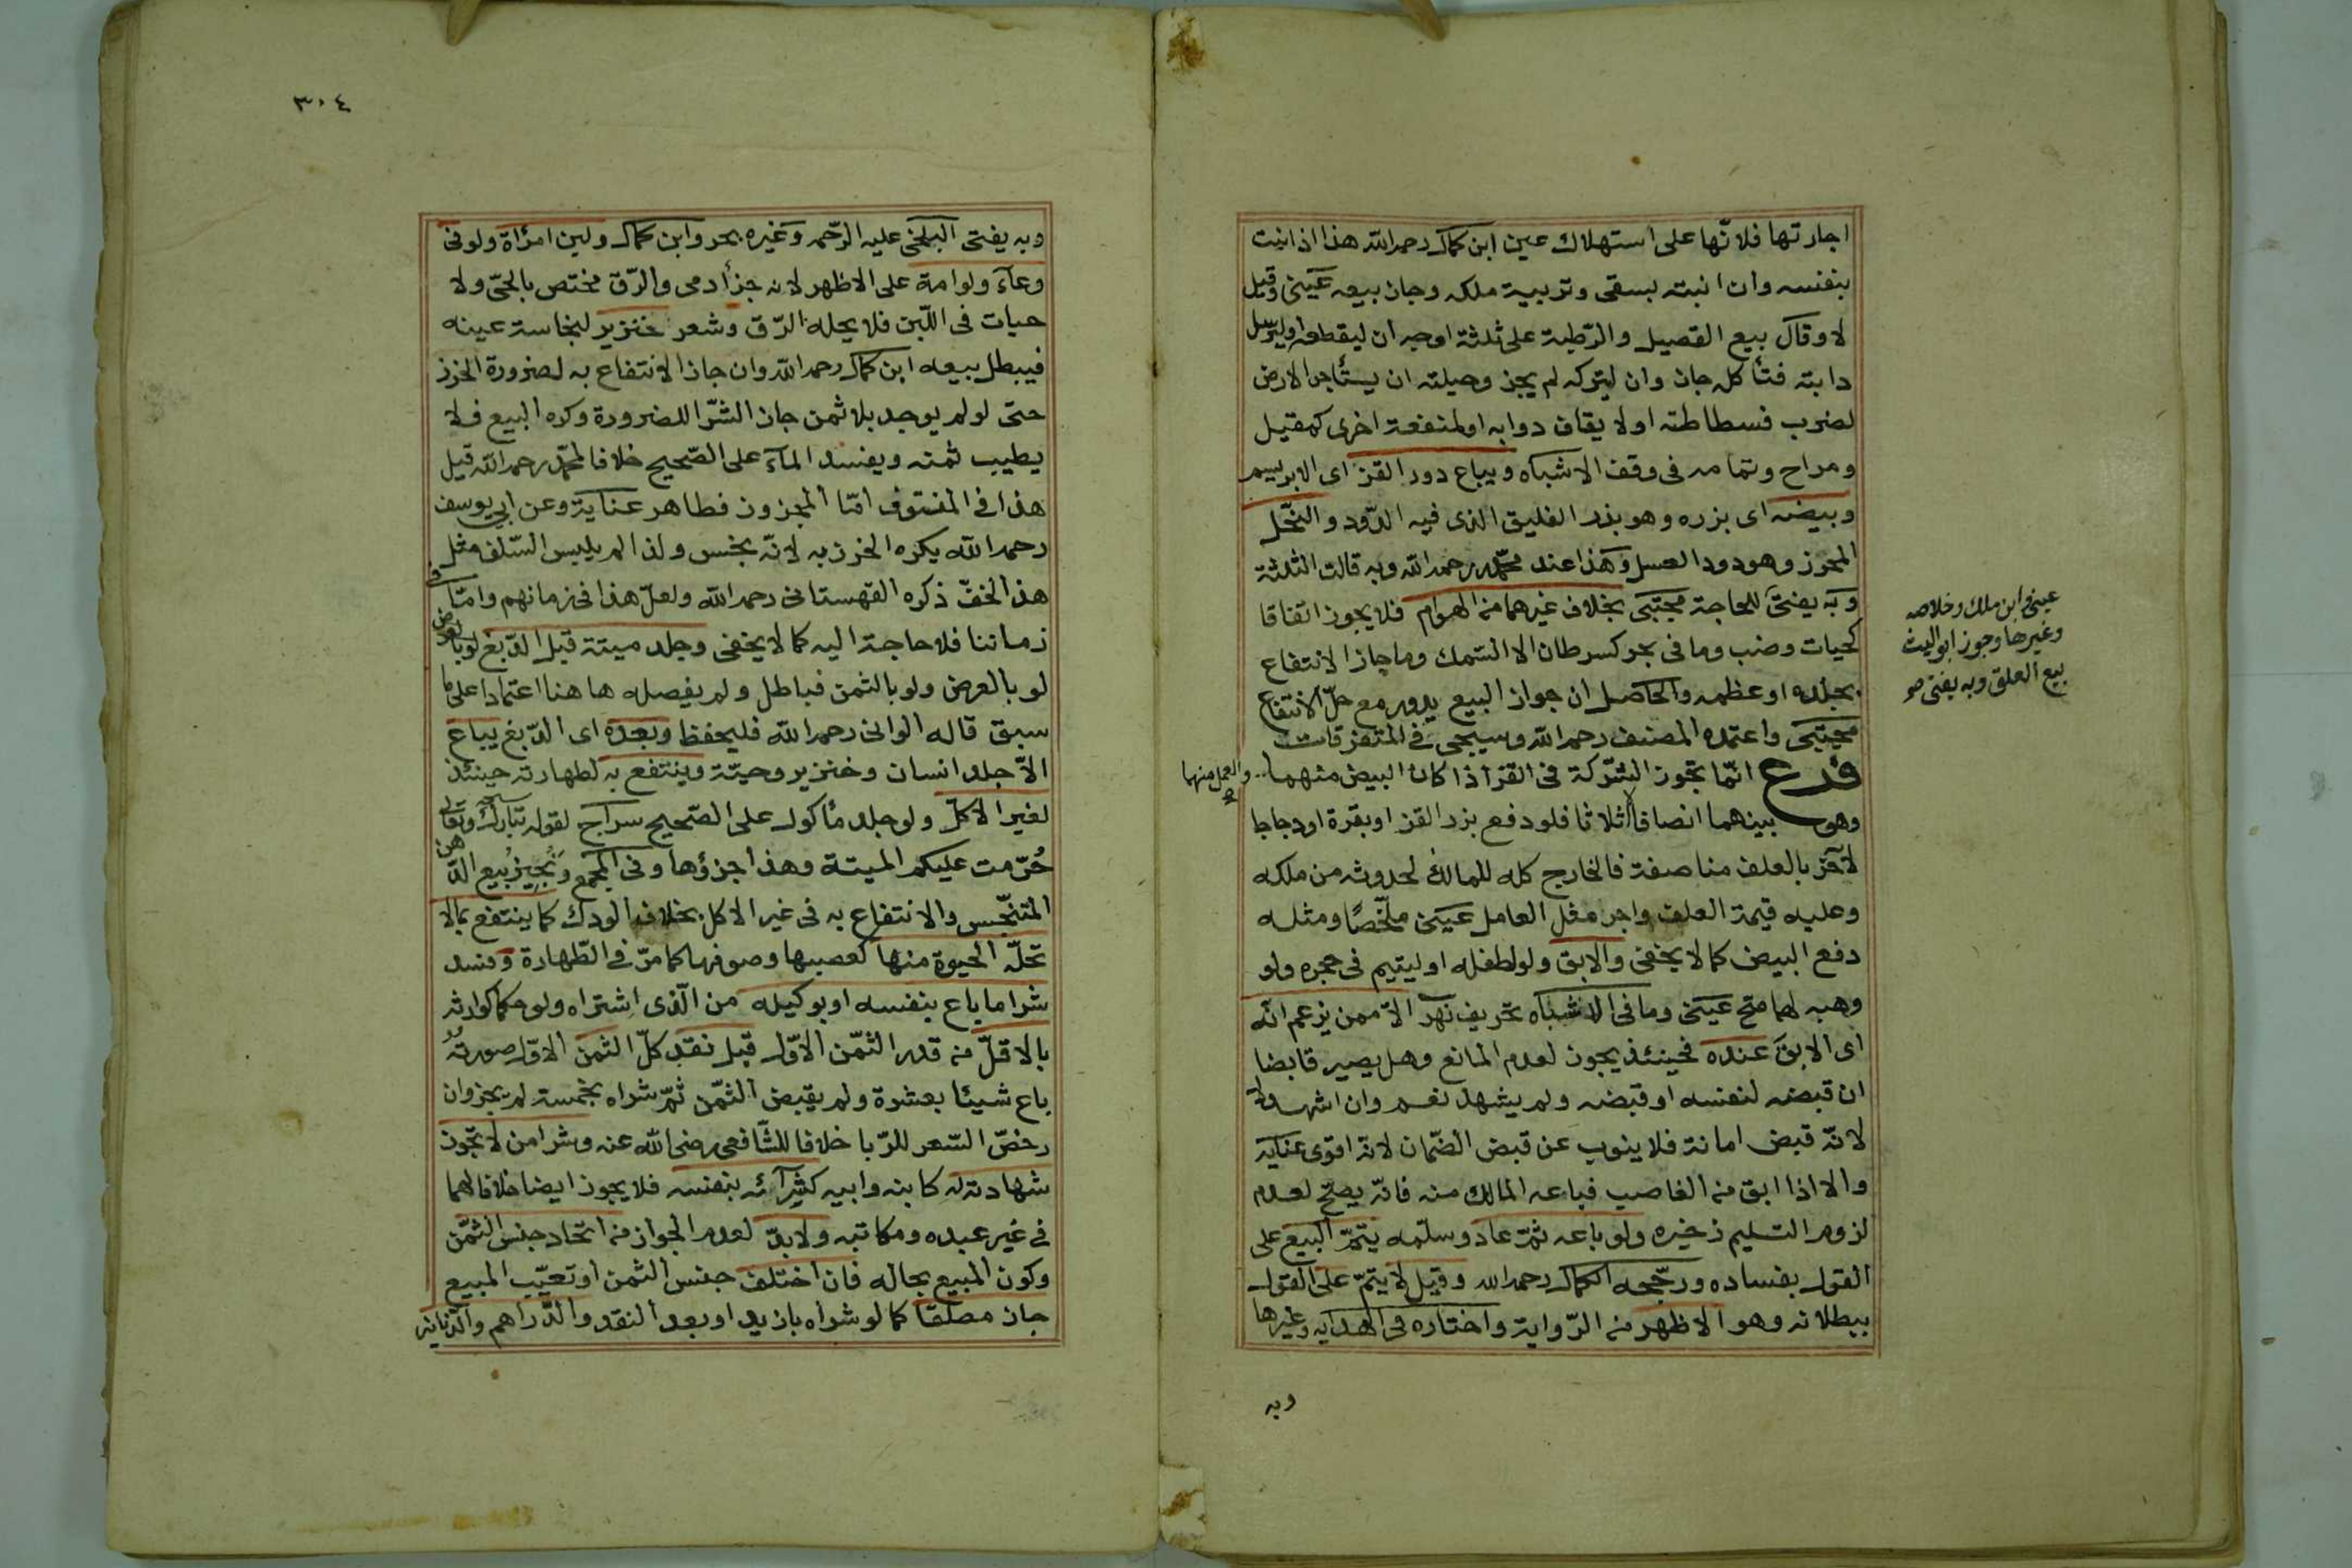 اجارتها فلانّها على استهلاك عين ابن كمال رحمه الله هذا اذا نبت
بنفسه وان انبته بسقى وتربية ملكه وجاز بيعه عينى وقيل
لا وقال بيع القصيل والرّطبة على ثلثة اوجه ان ليقطعه او ليرسل
دابته فتأكل جاز وان ليتركه لم يجز وحيلته ان يستأجر الارض
لضرب فسطاطته او لايقاف دوابه او لمنفعة اخرى كمقيل
ومراح وتمامه فى وقف الاشباه ويباع دود القز اى الابريسم
وبيضه اى بزره وهو بذر الفليق الذى فيه الدّود والنحّل
المحرز وهو دود العسل وهذا عند محمّد رحمه الله وبه قالت الثلثة
وبه يفتىَ للحاجة مجتبى بخلاف غيرهما من الهوام فلا يجوز اتّفاقا
كحيات وضب وما فى بحر كسرطان الا السّمك وما جاز الانتفاع
بجلده او عظمه والحاصل ان جواز البيع يدور مع حلّ الانتفاع
مجتبى واعتمده المصنف رحمه الله وسيجئ فى المتفرقات
فرع انّما تجوز الشّركة فى القز اذا كان البيض منهما
والعمل منهما
وهو بينهما انصافا لا اثلاثا فلو دفع بزر القز او بقرة او دجاجا
لآخر بالعلف مناصفة فالخارج كله للمالك لحدوثه من ملكه
وعليه قيمة العلف واجر مثل العامل عينى ملخّصًا ومثله
دفع البيض كما لا يخفى والابق ولو لطفله او ليتيم فى حجره ولو
وهبه لهما صح عينى وما فى الاشباه تحريف نهر الاّ ممن يزعم انّه
اى الابق عنده فحينئذ يجوز لعدم المانع وهل يصير قابضا
ان قبضه لنفسه او قبضه ولم يشهد نعم وان اشهد لا
لانّه قبض امانة فلا ينوب عن قبض الضّمان لانّه اقوى عناية
والا اذا ابق من الغاصب فباعه المالك منه فانّه يصحّ لعدم
لزوم التسليم ذخيره ولو باعه ثمّ عاد وسلّمه يتمّ البيع على
القول بفساده ورجّحه الكمال رحمه الله وقيل لا يتمّ على القول
ببطلانه وهو الاظهر من الرّواية واختاره فى الهدايه وغيرها
وبه
عينى ابن ملك وخلاصه
وغيرها وجوز ابو اليث
بيع العلق وبه يفتى صح
٣٠٤
وبه يفتى البلخى عليه الرّحمه وغيره بحر وابن كمال ولبن امرأة ولو فى
وعآء ولو امة على الاظهر لانه جزأ دمى والرّق مختص بالحىّ ولا
حيات فى اللّبن فلا يحله الرّق وشعر خنزير لنجاسة عينه
فيبطل بيعه ابن كمال رحمه الله وان جاز الانتفاع به لضرورة الخرز
حتى لو لم يوجد بلا ثمن جاز الشّرا للضرورة وكره البيع فلا
يطيب ثمنه ويفسد المآء على الصّحيح خلافا لمحمّد رحمه الله قيل
هذا فى المنتوف امّا المجزوز فطاهر عناية وعن ابى يوسف
رحمه الله يكره الخرز به لانّه نجس ولذا لم يلبس السّلف مثل
هذا الخفّ ذكره القهستانى رحمه الله ولعلّ هذا فى زمانهم وامّا فى
زماننا فلا حاجة اليه كما لا يخفى وجلد ميتة قبل الدّبغ لو بالعرض
لو بالعرض ولو بالثمن فباطل ولم يفصله ها هنا اعتمادا على ما
سبق قاله الوانى رحمه الله فليحفظ وبعده اى الدّبغ يباع
الاّ جلد انسان وخنزير وحيّة وينتفع به لطهارته حينئذ
لغير الاكل ولو جلد مأكول على الصّحيح سراج لقوله تبارك وتعالى
حُرّمت عليكم الميتة وهذا جزؤها وفى المجمع ونُجيز بيع الدّهن
المتنجّس والانتفاع به فى غير الاكل بخلاف الودك كما ينتفع بما لا
تحلّه الحيوة منها كعصبها وصوفها كما مرّ فى الطّهارة وفسد
شرا ما باع بنفسه او بوكيله من الّذى اشتراه ولو حكما كوارثه
بالاقلّ من قدر الثمّن الاوّل قبل نقد كلّ الثمن الاوّل صورته
باع شيئا بعشرة ولم يقبض الثمّن ثمّ شراه بخمسة لم يجز وان
رخصّ السّعر للرّبا خلافا للشّافعى رضى الله عنه وشرا من لا تجوز
شهادته له كابنه وابيه كشرآئه بنفسه فلا يجوز ايضا خلافا لهما
فى غير عبده ومكاتبه ولابدّ لعدم الجواز من اتحاد جنس الثمّن
وكون المبيع بحاله فان اختلف جنس الثمن او تعيّب المبيع
جاز مطلقا كما لو شراه بازيد او بعد النقد والدّراهم والدّنانير